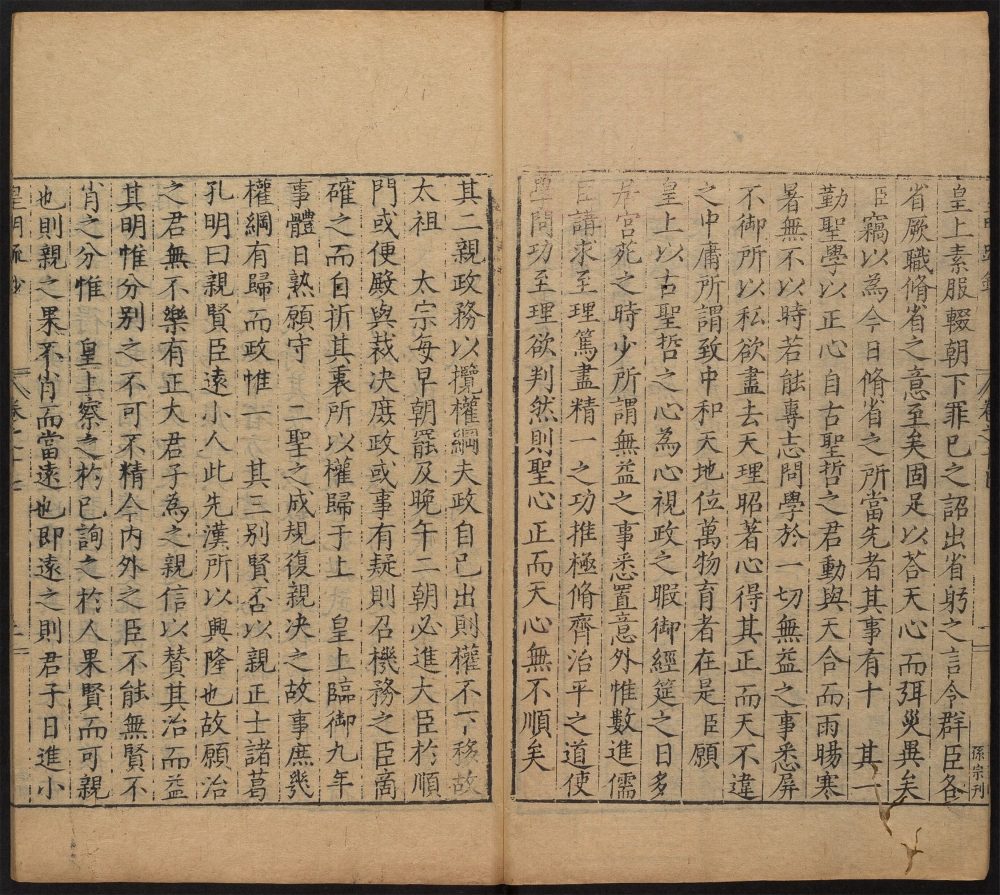 皇上素服輟朝下罪已之詔出省躬之言令群臣各
省厥職脩省之意至矣固足以荅天心而弭災異矣
臣竊以為今日脩省之所當先者其事有十 其一
勤聖學以正心自古聖哲之君動與天合而雨暘寒
暑無不以時若能專志問學於一切無益之事悉屏
不御所以私欲盡去天理昭著心得其正而天不違
之中庸所謂致中和天地位萬物育者在是臣願
皇上以古聖哲之心為心視政之暇御經筵之日多
居宮苑之時少所謂無益之事悉置意外惟數進儒
臣講求至理篤盡精一之功推極脩齊治平之道使
學問功至理欲判然則聖心正而天心無不順矣
孫宗刊
其二親政務以攬權綱夫政自已出則權不下移故
太祖 太宗每早朝罷及晚午二朝必進大臣於順
門或便殿與裁决庶政或事有疑則召機務之臣商
確之而自祈其衷所以權歸于上 皇上臨御九年
事體日熟願守 二聖之成規復親决之故事庶幾
權綱有歸而政惟一 其三别賢否以親正士諸葛
孔明曰親賢臣遠小人此先漢所以興隆也故願治
之君無不樂有正大君子為之親信以賛其治而益
其明惟分别之不可不精今内外之臣不能無賢不
肖之分惟 皇上察之於已詢之於人果賢而可親
也則親之果不肖而當遠也即遠之則君子日進小
皇明疏鈔